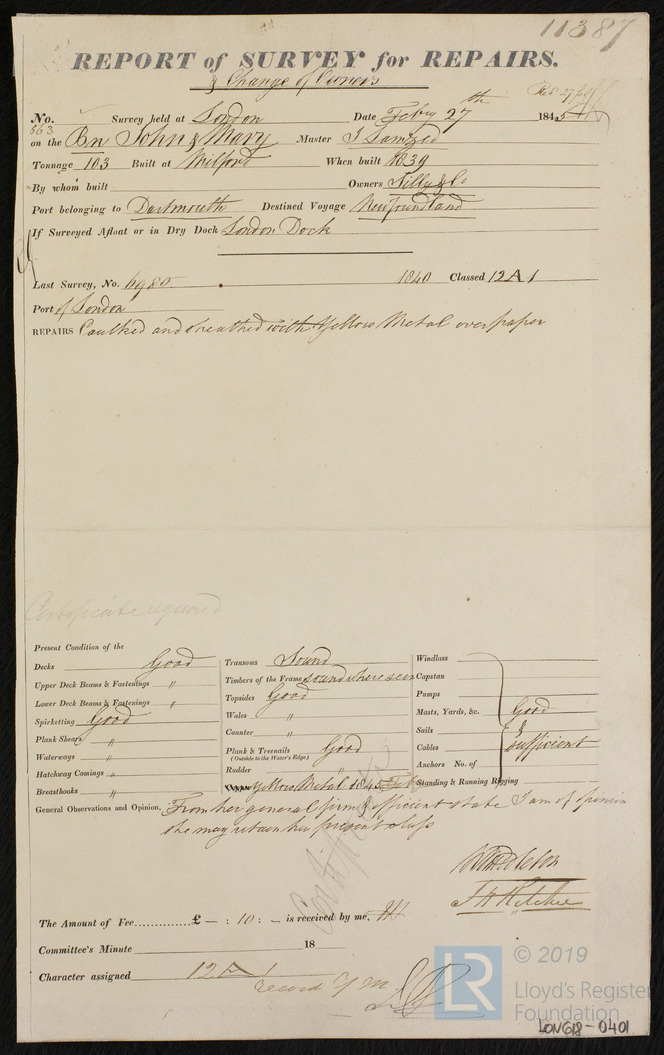 11387
REPORT of SURVEY for REPAIRS.
& Change of Owners
No. 563 Survey held at London Date Feby 27th 1845
on the Bn John & Mary Master J
Tonnage 103 Built at Milford When built 1839
By whom built Owners & Co
Port belonging to Dartmouth Destined Voyage Newfoundland
If Surveyed Afloat or in Dry Dock London Dock
Last Survey, No. 6980 1840 Classed 12 A 1
Port of London
REPAIRS Caulked and sheathed with Yellow Metal over paper
Certificate required
Present Condition of the
Decks Good
Upper Deck Beams & Fastenings "
Lower Deck Beams & Fastenings "
Spirketting Good
Plank Shears "
Waterways "
Hatchway Comings "
Breasthooks "
Transoms Sound
Timbers of the Frame sound where seen
Topsides Good
Wales "
Counter "
Plank & Treenails Good
(Outside to the Water's Edge)
Rudder "
Yellow Metal 1845 Feb
Windlass
Capstan
Pumps
Masts, Yards, &c. Good
Sails &
Cables sufficient
Anchors No. of
Standing & Running Rigging
General Observations and Opinion, From her general firm & efficient state I am of opinion
she may retain her present class
Certificate
The Amount of Fee £ — : 10 : — is received by me,
Committee's Minute 18
Character assigned 12 A 1
record Y M
LR © 2019
Lloyd's Register
Foundation
LON618-0401